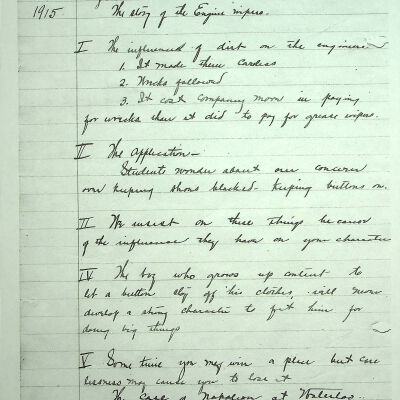 1915
The story of the Engine wipers.
I The influence of dirt on the engineer
1. It made them careless
2. Wrecks followed
3. It cost Company more in paying
for wrecks than it did to pay for grease wipers.
II The Application —
Students wonder about our concern
over keeping shoes blacked - keeping buttons on.
III We insist on these things because
of the influence they have on your character
IV The boy who grows up content to
let a button slip off his clothes, will never
develop a strong character to fit him for
doing big things
V Some time you may win a place but care
lessness may cause you to lose it
The case of Napoleon at Waterloo..